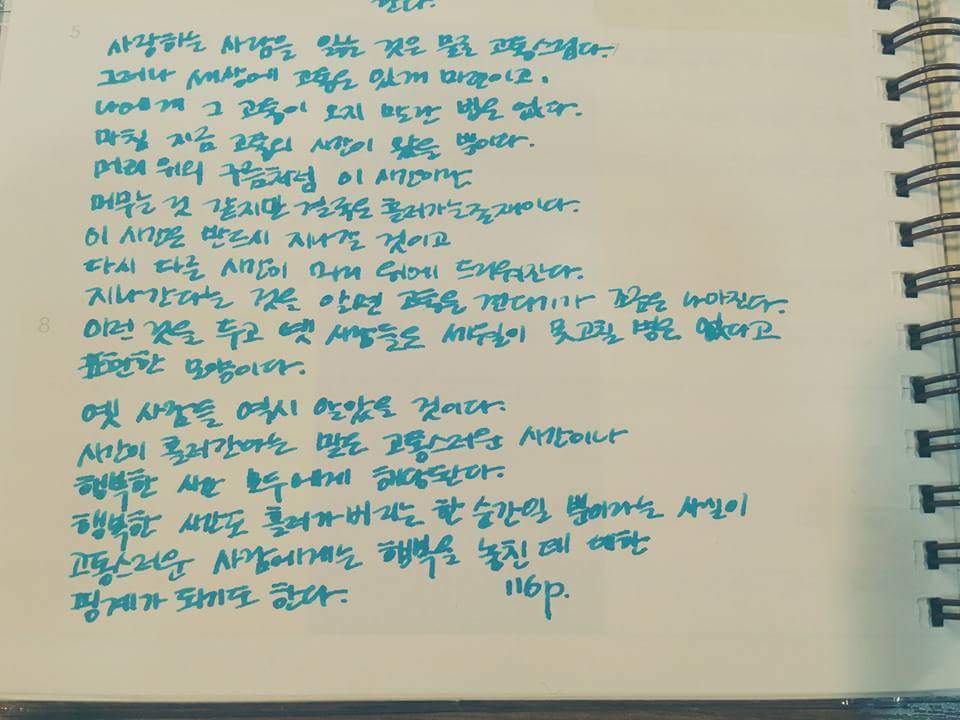 한다.
5
사랑하는 사람을 잃는 것은 물론 고통스럽다.
그러나 세상에 고통은 있게 마련이고.
나에게 그 고통이 오지 말란 법은 없다.
마침 지금 고통의 시간이 왔을 뿐이다.
머리 위의 구름처럼 이 시간이란
머무는 것 같지만 결국은 흘러가는 존재이다.
이 시간은 반드시 지나갈 것이고
다시 다른 시간이 머리 위에 드리워진다.
지나간다는 것을 알면 고통을 견디기가 조금은 나아진다.
8
이런 것을 두고 옛 사람들은 세월이 못고칠 병은 없다고
표현한 모양이다.
옛 사람들 역시 알았을 것이다.
시간이 흘러간다는 말은 고통스러운 시간이나
행복한 시간 모두에게 해당된다.
행복한 시간도 흘러가버리는 한 순간일 뿐이라는 사실이
고통스러운 사람에게는 행복을 놓친 데 대한
핑계가 되기도 한다. 116p.